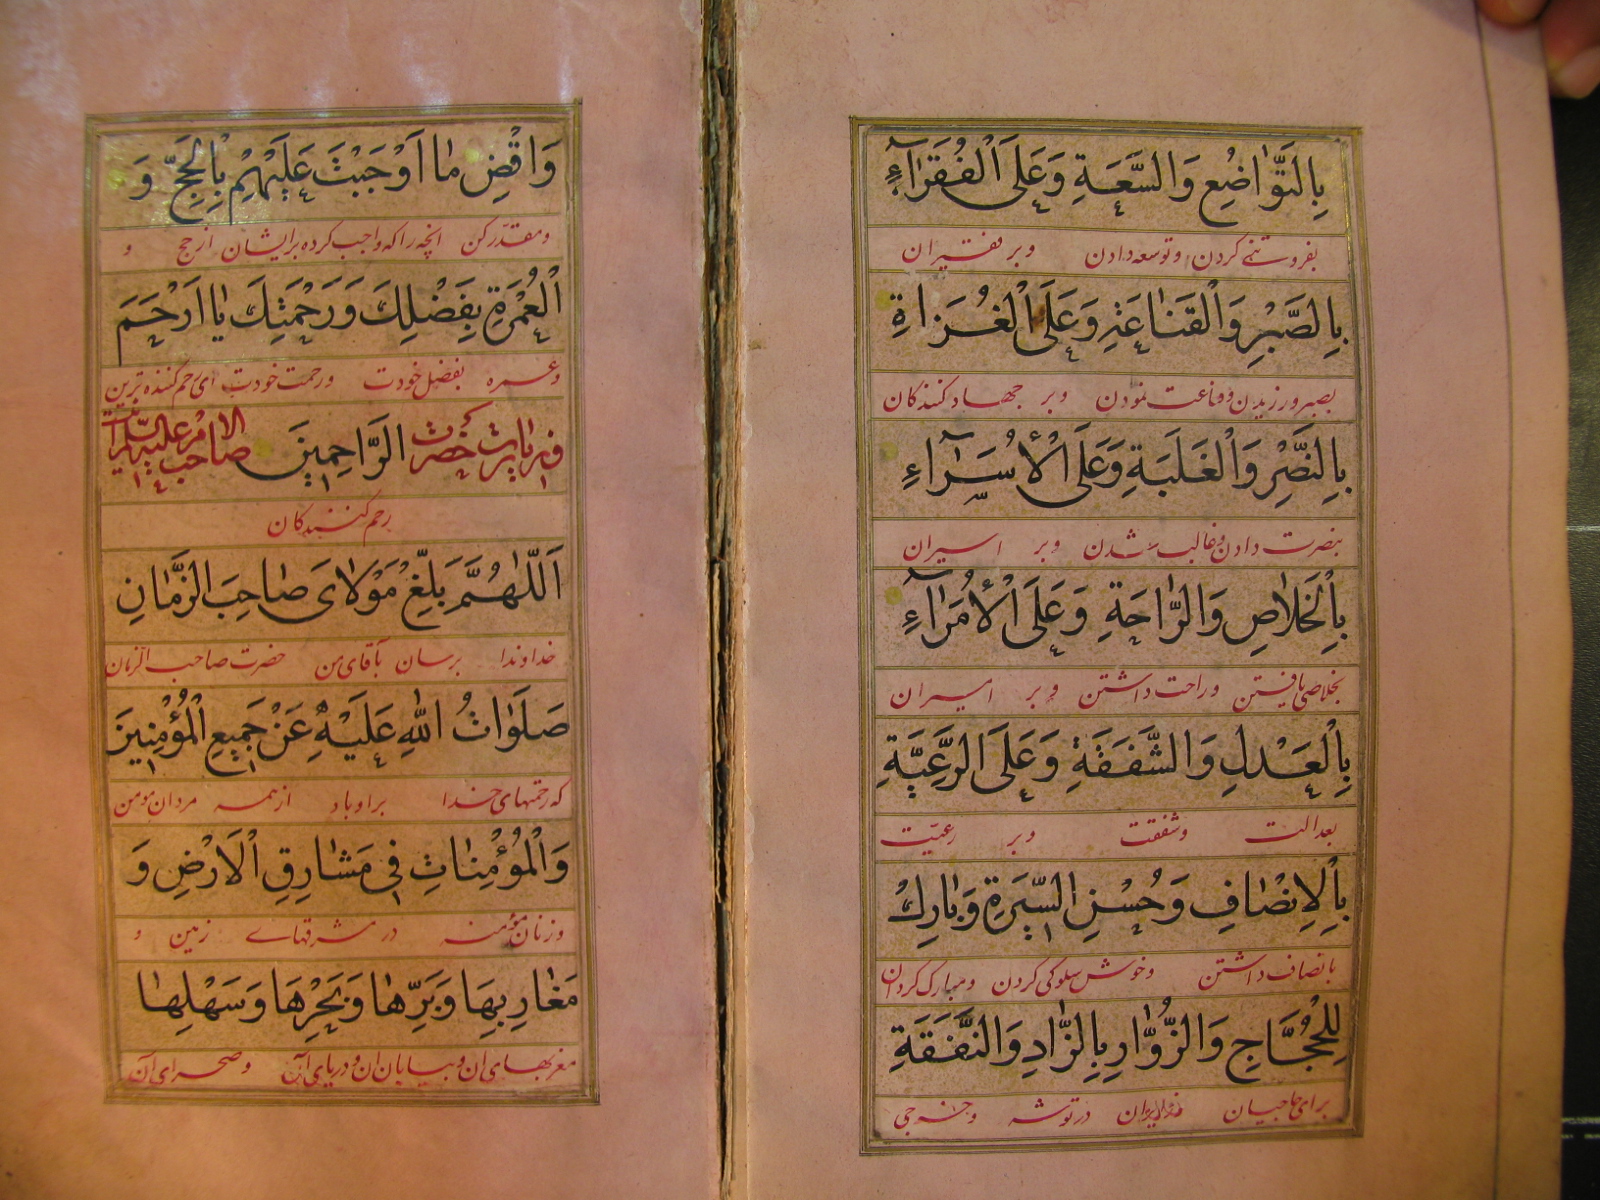 بِالتَّوٰاضُعِ وَالسَّعَةِ وَعَلَى الْفُقَرٰآءِ
بفروتنی کردن و توسعه دادن و بر فقیران
بِالصَّبْرِ وَالْقَنٰاعَةِ وَعَلَى الْغُزَاةِ
بصبر ورزیدن و قناعت نمودن و بر جهاد کنندکان
بِالنَّصْرِ وَالْغَلَبَةِ وَعَلَى الْأُسَرٰآءِ
بنصرت دادن و غالب شدن و بر اسیران
بِالْخَلاٰصِ وَالرّٰاحَةِ وَعَلَى الْأُمَرٰآءِ
بخلاصی یافتن و راحت داشتن و بر امیران
بِالْعَدْلِ وَالشَّفَقَةِ وَعَلَى الرَّعِيَّةِ
بعدالت و شفقت و بر رعیّت
بِالْاِنْصٰافِ وَحُسْنِ السّٖيرَةِ وَبٰارِكْ
بانصاف داشتن و خوش سلوکی کردن و مبارک کردان
لِلْحُجّٰاجِ وَالزُّوّٰارِ بِالزّٰادِ وَالنَّفَقَةِ
برای حاجیان در توشه و خرجی
وَاقْضِ مٰا اَوْجَبْتَ عَلَيْهِمْ بِالْحَجِّ وَ
و مقدّر کن انچه را که واجب کرده بر ایشان از حج و
الْعُمْرَةِ بِفَضْلِكَ وَرَحْمَتِكَ يٰا اَرْحَمَ
و عمره بفضل خودت و رحمت خودت ای رحم کننده ترین
الرّٰاحِمٖينَ زیارت حضرت صاحب الامر علیه السلام
رحم کنندکان
اَللّٰهُمَّ بَلِّغْ مَوْلاٰىَ صٰاحِبَ الزَّمٰانِ
خداوندا برسان بآقای من حضرت صاحب الزمان
صَلَوٰاتُ اللّٰهِ عَلَيْهِ عَنْ جَمٖيعِ الْمُؤْمِنٖينَ
که رحمتهای خدا بر او باد از همه مردان مومن
وَالْمُؤْمِنٰاتِ فٖى مَشٰارِقِ الْاَرْضِ وَ
و زنان مؤمنه در مشرقهای زمین و
مَغٰارِبِهٰا وَبَرِّهٰا وَبَحْرِهٰا وَسَهْلِهٰا
مغربهای ان و بیابان ان و دریای آن و صحرای آن